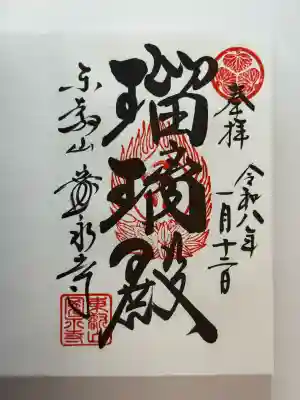 奉拝
令和八年
一月十二日
瑠璃殿
東叡山寛永寺
東叡山
寛永寺